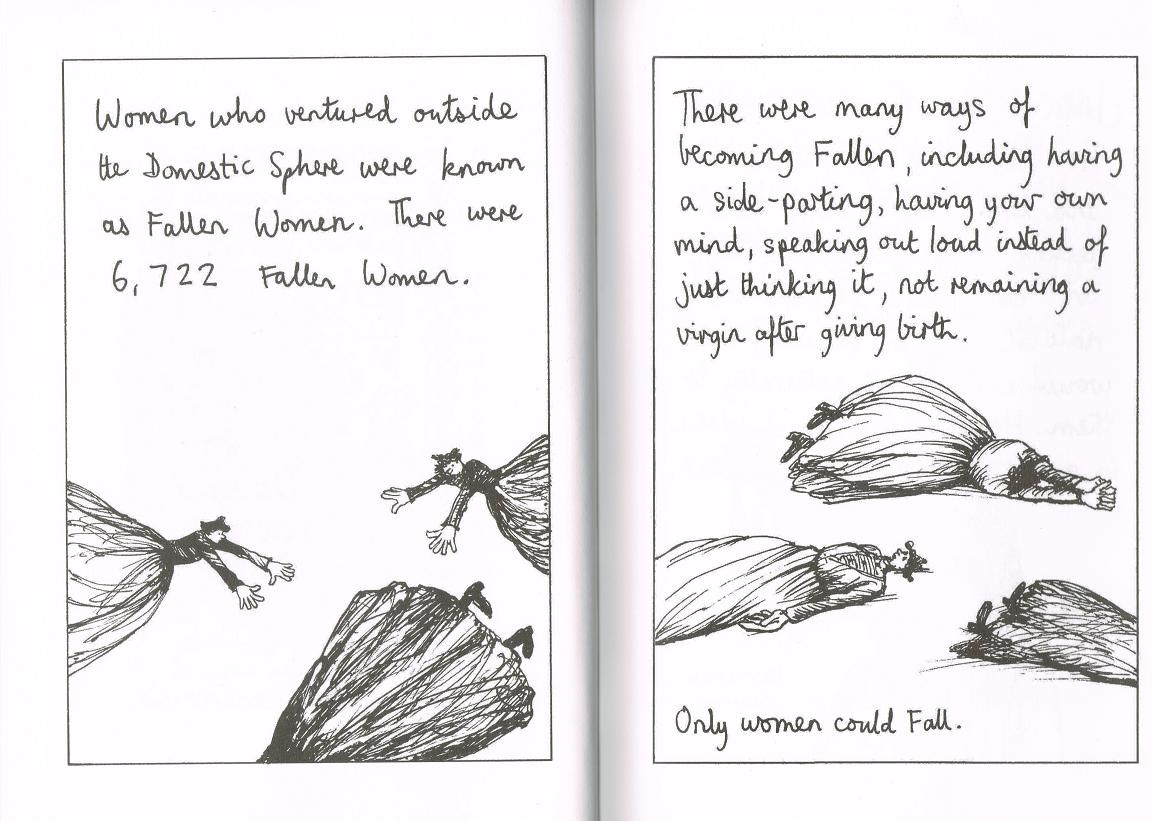 Women who ventured outside
the Domestic Sphere were known
as Fallen Women. There were
6,722 Fallen Women.
There were many ways of
becoming Fallen, including having
a side-parting, having your own
mind, speaking out loud instead of
just thinking it, not remaining a
virgin after giving birth.
Only women could Fall.